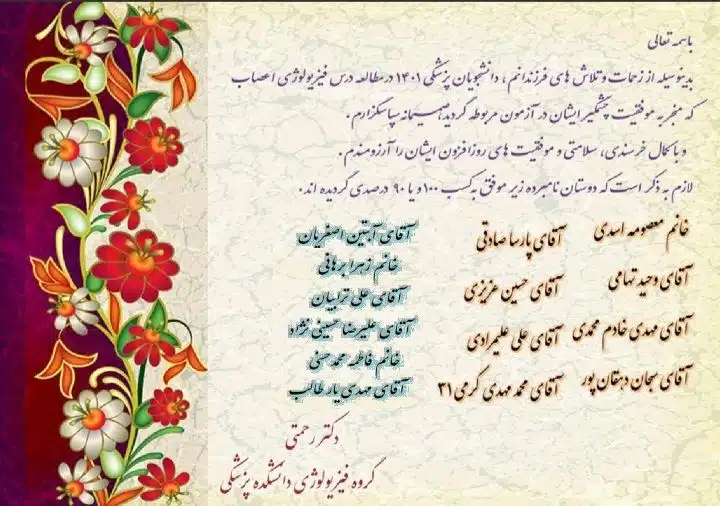 باسمه تعالی
بدینوسیله از زحمات و تلاش های فرزندانم ، دانشجویان پزشکی ۱۴۰۱ در مطالعه درس فیزیولوژی اعصاب
که منجر به موفقیت چشمگیر ایشان در آزمون مربوطه گردید صمیمانه سپاسگزارم .
و با کمال خرسندی، سلامتی و موفقیت های روزافزون ایشان را آرزومندم .
لازم به ذکر است که دوستان نامبرده زیر موفق به کسب ۱۰۰ و یا ۹۰ درصدی گردیده اند.
خانم معصومه اسدی
آقای وحید تهامی
آقای مهدی خادم محمدی
آقای سبحان دهقان پور
آقای پارسا صادقی
آقای حسین عزیزی
آقای علی علیمرادی
آقای محمد مهدی کرمی ۳۱
آقای آبتین اصغریان
خانم زهرا برهانی
آقای علی ترابیان
آقای علیرضا حسینی نژاد
خانم فاطمه محمد حسنی
آقای مهدی یار طالب
دکتر رحمتی
گروه فیزیولوژی دانشکده پزشکی